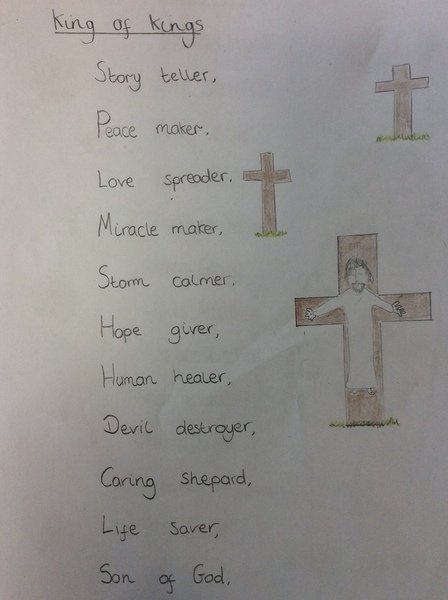 King of Kings
Story teller,
Peace maker,
Love spreader.
Miracle maker,
Storm calmer.
Hope giver,
Human healer,
Devil destroyer,
Caring shepard,
Life saver,
Son of God,